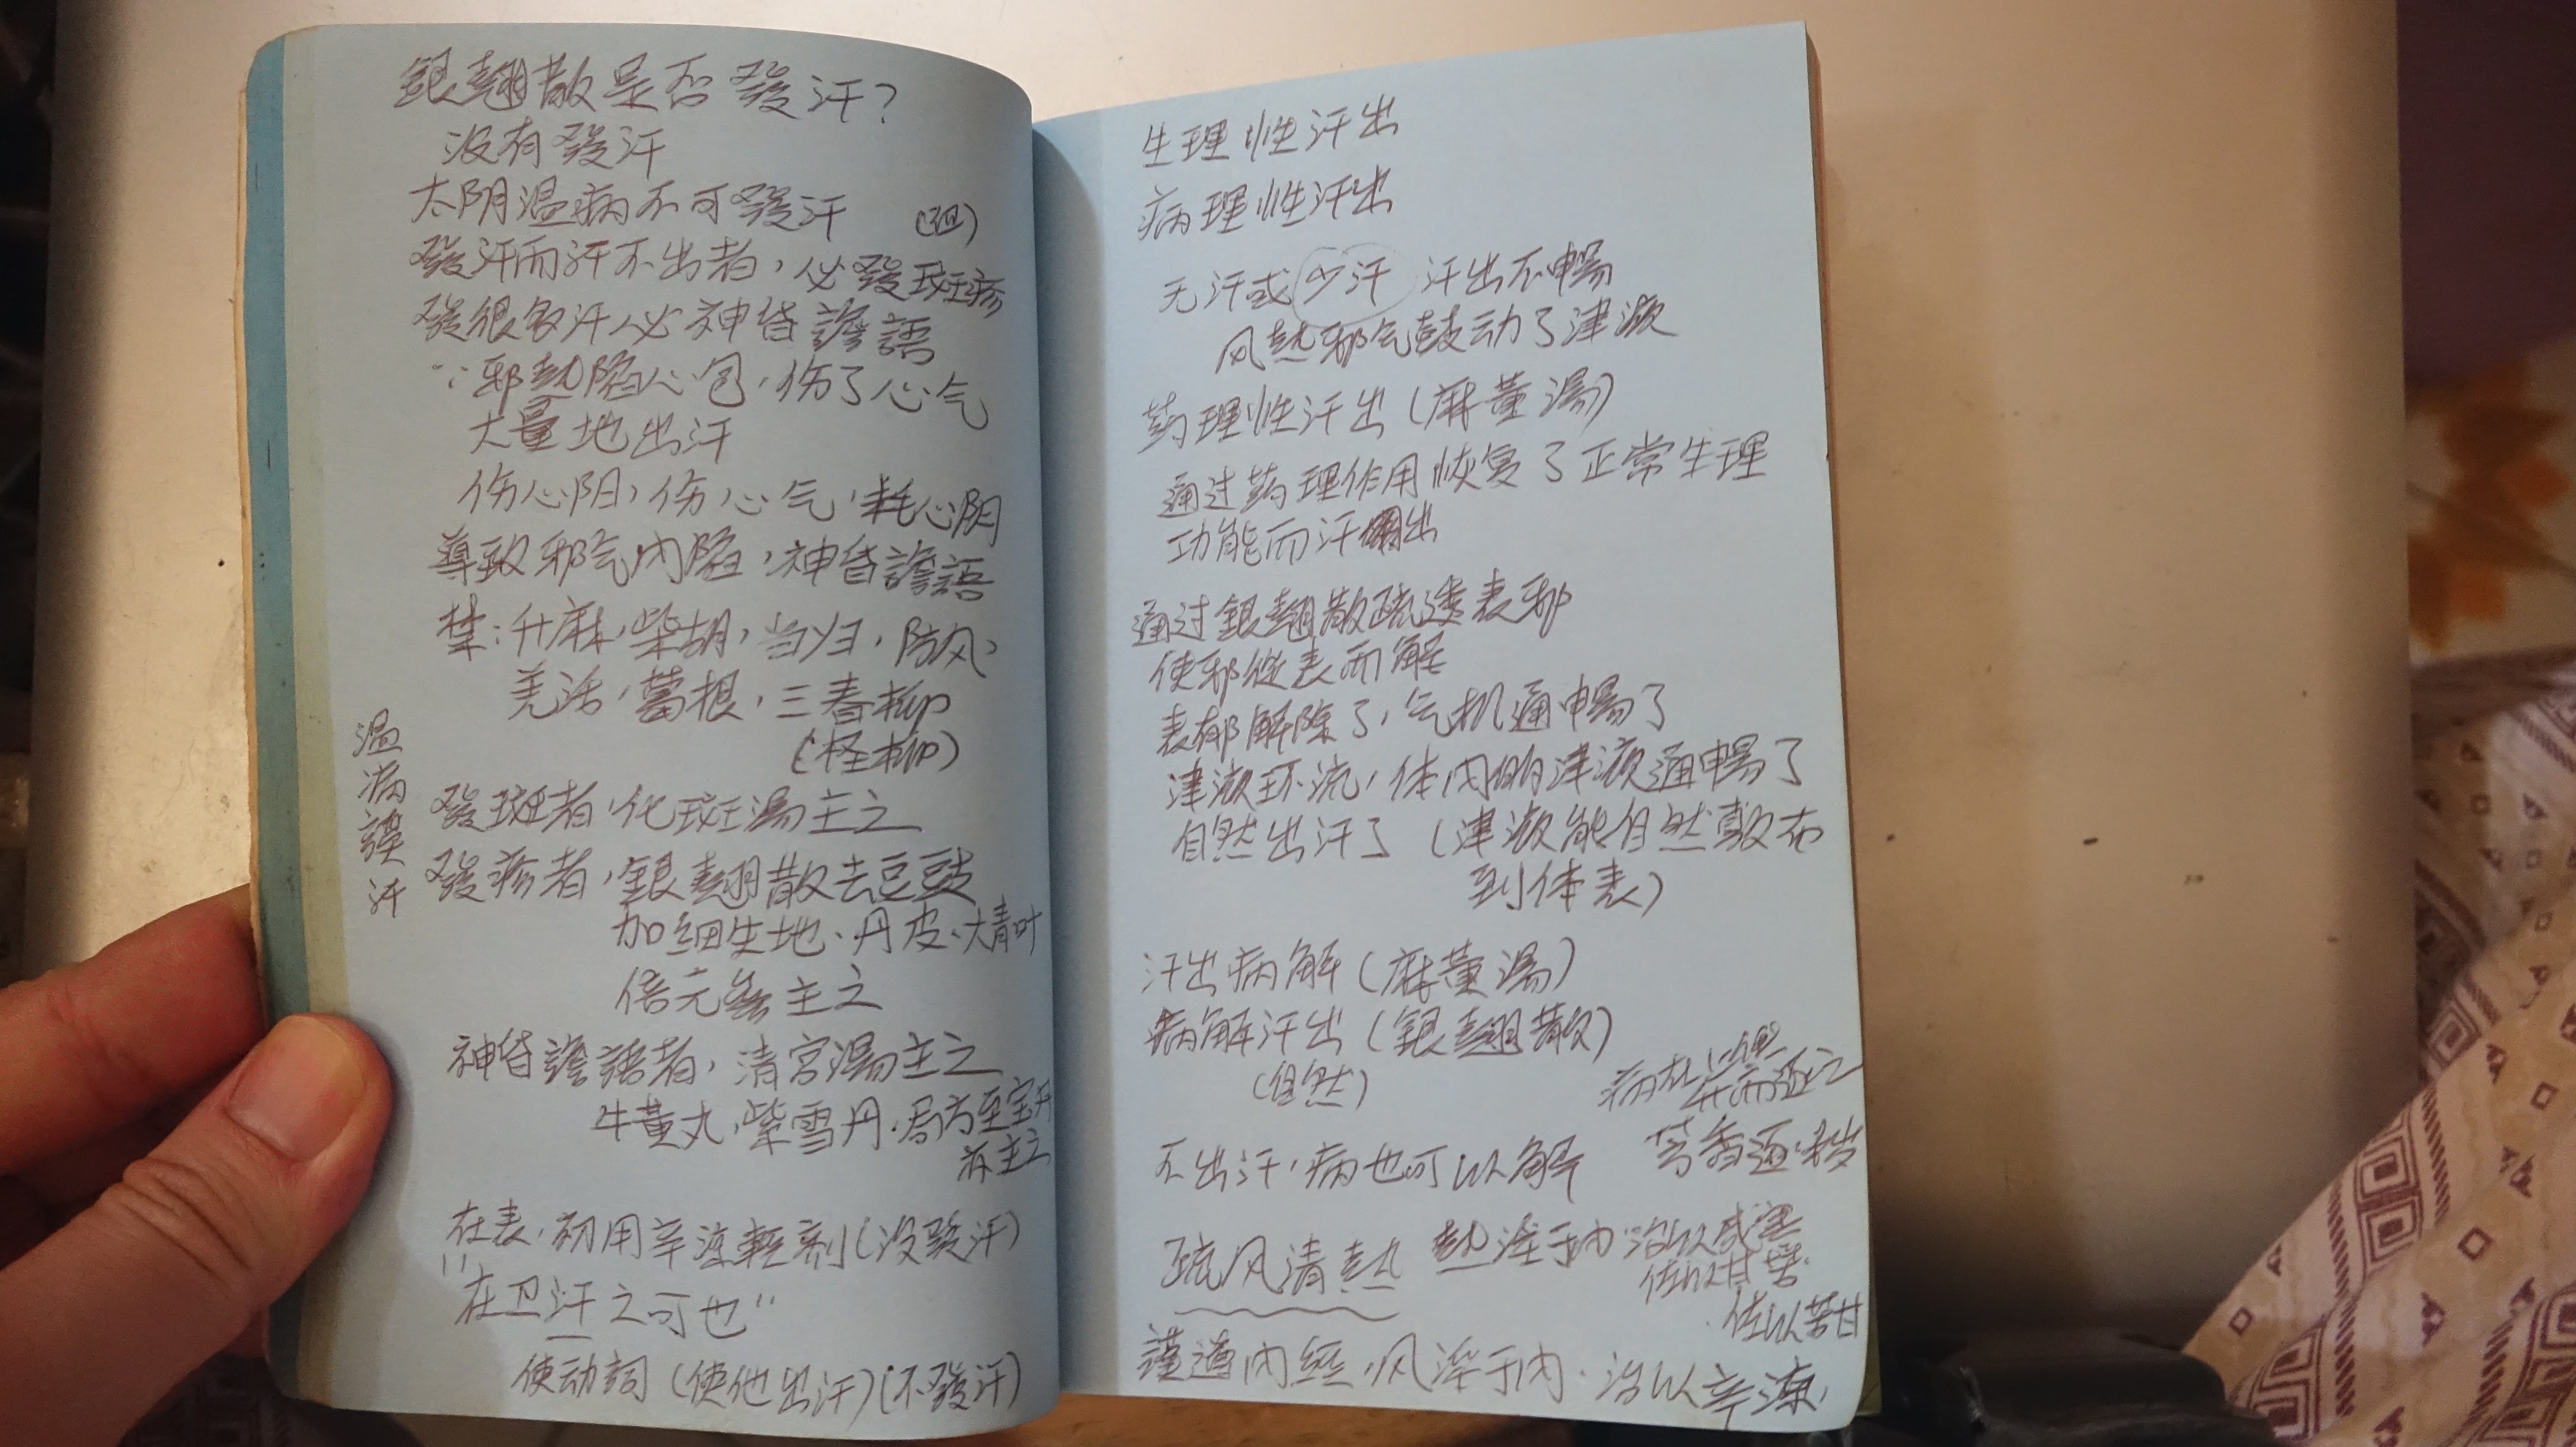 銀翹散是否發汗?
没有發汗
太阴温病不可發汗
發汗而汗不出者,必發斑疹
發很多汗必神昏譫語
∵邪熱陷心包,伤了心气
大量地出汗
伤心阳,伤心气,耗心阴
導致邪气内陷,神昏譫語
禁:升麻,柴胡,当归,防风、
羌活,葛根,三春柳
(柽柳)
温病誤汗
發斑者,化斑湯主之
發疹者,銀翹散去豆豉
加细生地、丹皮、大青叶
倍元參主之
神昏譫語者,清宮湯主之
牛黄丸,紫雪丹,局方至宝丹
亦主之
在表,初用辛凉輕剂(没發汗)
"在卫汗之可也"
使动詞(使他出汗)(不發汗)
生理性汗出
病理性汗出
无汗或少汗 汗出不暢
风熱邪气鼓动了津液
药理性汗出(麻黄湯)
通过药理作用恢复了正常生理
功能而汗出
通过銀翹散疏透表邪
使邪從表而解
表郁解除了,气机通暢了
津液环流,体内的津液通暢了
自然出汗了(津液能自然敷布
到体表)
汗出病解(麻黄湯)
病解汗出(銀翹散)
(自然)
不出汗,病也可以解
芳香逐秽
疏风清熱 熱淫于内 治以咸寒
佐以甘苦
佐以苦甘
謹遵内經,风淫于内,治以辛凉,